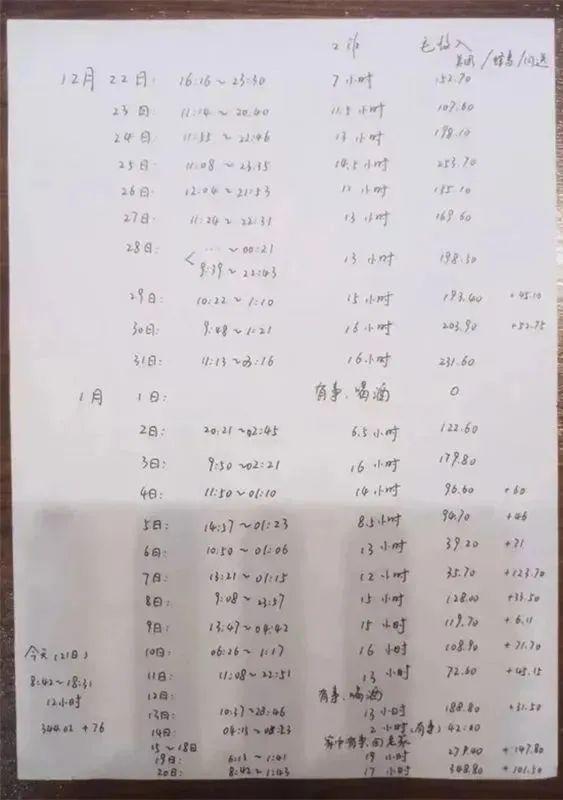 工作 毛收入
美团/蜂鸟/闪送
12月 22日: 16:16~23:30 7小时 152.70
23日: 11:14~20:40 11.5小时 107.60
24日: 11:55~22:46 13小时 198.10
25日: 11:08~23:35 14.5小时 253.70
26日: 12:04~21:53 11小时 135.10
27日: 11:24~22:31 13小时 169.60
28日: < ...~00:21
9:39~22:43 13小时 198.30
29日: 10:22~1:10 15小时 193.40 +45.10
30日: 9:48~1:21 16小时 203.90 +52.75
31日: 11:13~03:16 16小时 231.60
1月 1日: 有事、喝酒 0
2日: 20:21~02:45 6.5小时 122.60
3日: 9:50~02:21 16小时 179.80
4日: 11:50~01:10 14小时 96.60 +60
5日: 14:37~01:23 8.5小时 94.70 +46
6日: 10:50~01:06 13小时 39.20 +71
7日: 13:21~01:15 12小时 35.70 +123.70
8日: 9:08~23:57 15小时 128.00 +33.50
9日: 13:47~04:42 15小时 119.70 +6.11
10日: 06:26~1:17 16小时 108.90 +71.70
11日: 11:08~22:51 13小时 72.60 +45.15
12日: 有事、喝酒
13日: 10:37~23:46 13小时 188.80 +31.50
14日: 04:15~08:23 2小时(有事) 42.00
15~18日 家中有事,回老家
19日: 6:13~1:41 19小时 279.40 +147.80
20日: 8:42~1:43 17小时 348.80 +101.50
今天(21日)
8:42~18:31
12小时
344.02+76